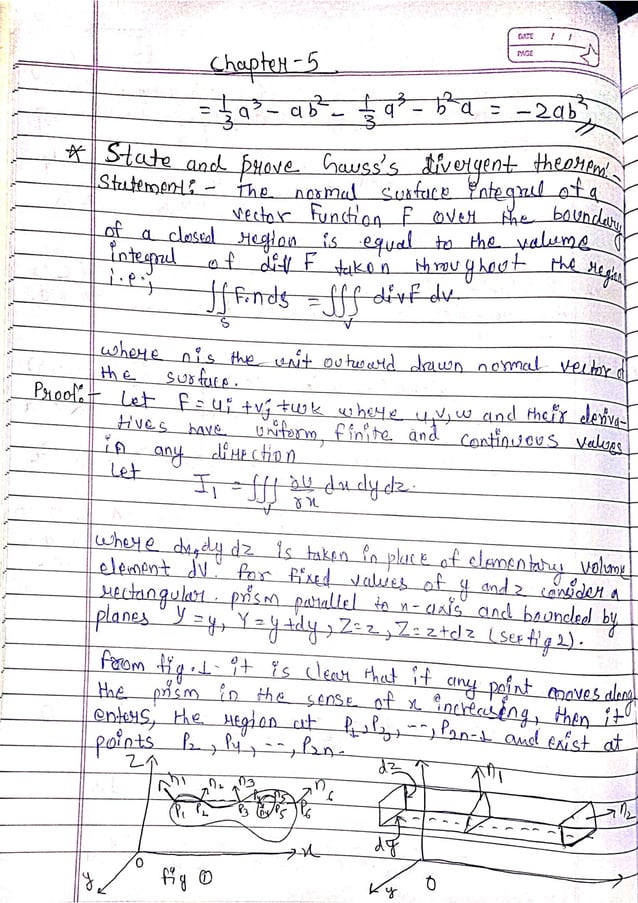 DATE / /
PAGE
Chapter-5
= 1/3 a³ - ab² - 1/3 a³ - b²a = -2ab²//
* State and prove Gauss's divergent theorem:-
Statement:- The normal surface integral of a
vector Function F over the boundary
of a closed region is equal to the valume
integral of div F taken throughout the region
i.e.;
∬_S F.n ds = ∭_V div F dv.
where n is the unit outward drawn normal vector of
the surface.
Proof:- Let F = ui + vj + wk where u, v, w and their deriva-
tives have uniform, finite and continuous values
in any direction
Let I₁ = ∭_V ∂u/∂x dx dy dz.
where dx, dy dz is taken in place of elementary volume
element dV. for fixed values of y and z consider a
rectangular. prism parallel to x-axis and bounded by
planes Y=y, Y=y+dy, Z=z, Z=z+dz (see fig 2).
from fig.1- it is clear that if any point moves along
the prism in the sense of x increasing, then it
enters, the region at P₁, P₃, --, P2n-1 and exist at
points P₂, P₄, --, P2n-
Z n₁ n₂ n₃ n₅ n₆
P₁ P₂ P₃ P₄ P₅ P₆
O x
y fig ①
dz n₁
n₂
dy
y O